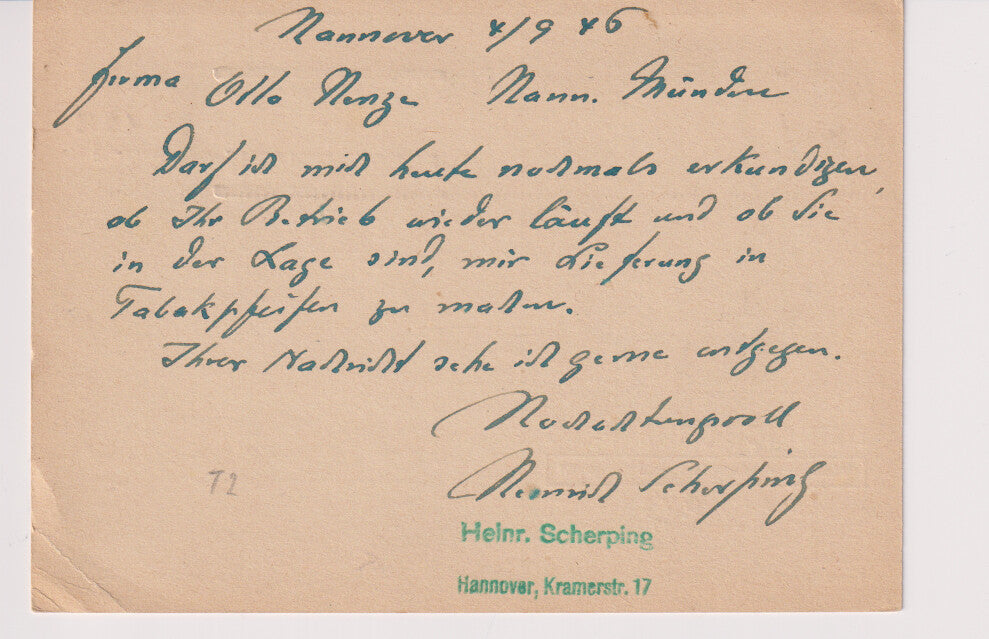 Hannover 4/9 46
Firma Otto Henze Hann. Münden
Darf ich mich heute nochmals erkundigen,
ob Ihr Betrieb wieder läuft und ob Sie
in der Lage sind, mir Lieferung in
Tabakpfeifen zu machen.
Ihrer Nachricht sehe ich gerne entgegen.
Hochachtungsvoll
Heinrich Scherping
Heinr. Scherping
Hannover, Kramerstr. 17
T2